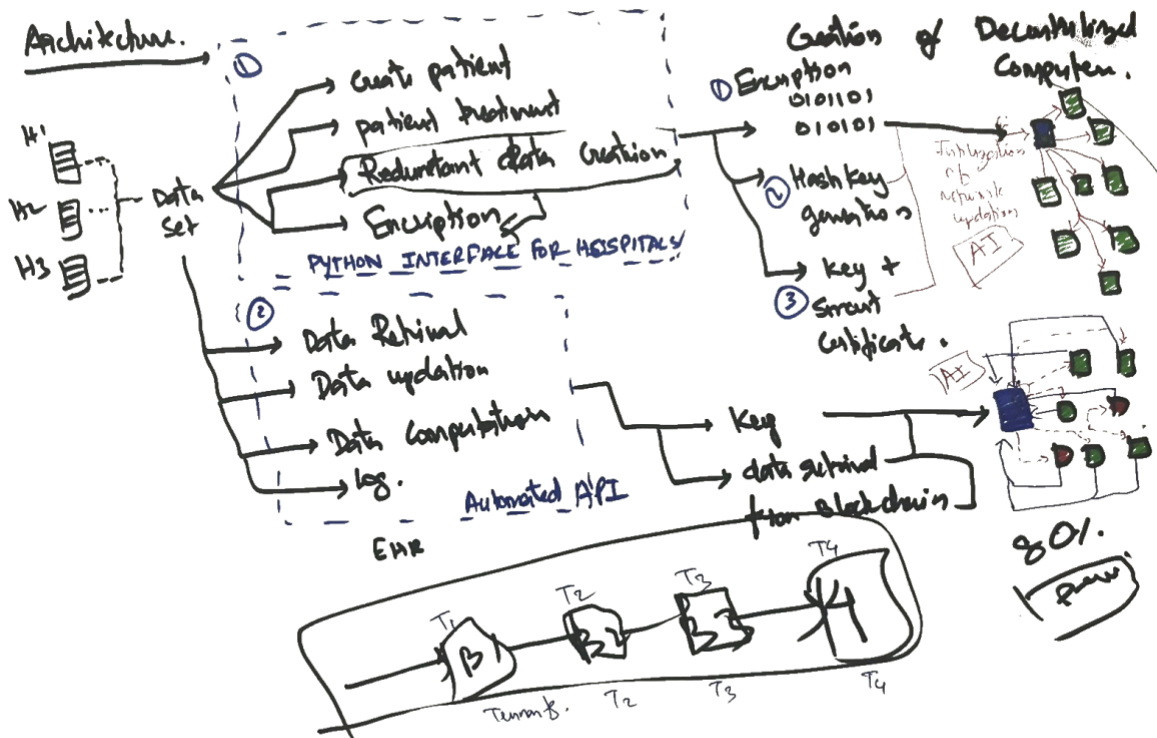 Architecture.
H1
H2
H3
Data
Set
①
create patient
patient treatment
Redundant data creation
Encription
PYTHON INTERFACE FOR HOSPITALS
②
Data Retrival
Data updation
Data Computation
Log.
Automated API
Creation of Decentralized
Computer.
① Encription
0101101
010101
② Hash key
generation
③ Key +
Smart
Certificate.
Initialization
of
network
updation
AI
AI
Key
data retrival
from Blockchain
80%
EHR
T1
T2
T3
T4
B1
B2
B3
T2
T3
T4